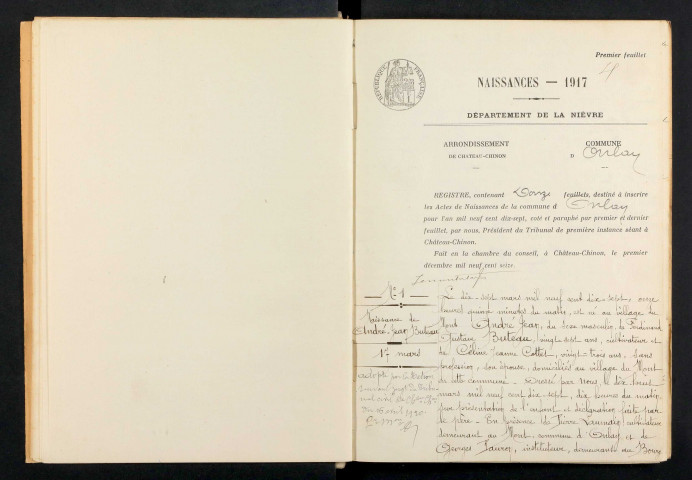 Premier feuillet
RÉPUBLIQUE FRANÇAISE
NAISSANCES — 1917
DÉPARTEMENT DE LA NIÈVRE
ARRONDISSEMENT
DE CHATEAU-CHINON
COMMUNE
D Onlay
REGISTRE, contenant Douze feuillets, destiné à inscrire
les Actes de Naissances de la commune d Onlay
pour l'an mil neuf cent dix-sept, coté et paraphé par premier et dernier
feuillet, par nous, Président du Tribunal de première instance séant à
Château-Chinon.
Fait en la chambre du conseil, à Château-Chinon, le premier
décembre mil neuf cent seize.
N° 1
Naissance de
André Jean Buteau
17 mars
adopté par la Nation
suivant jugt du Tribu
nal civil de
du 16 avril 1920
Le dix-sept mars mil neuf cent dix-sept, onze
heures quinze minutes du matin, est né au village du
Mont André Jean, du sexe masculin, de Ferdinand
Gustave Buteau, vingt sept ans, cultivateur et
de Céline Jeanne Cottet, vingt-trois ans, sans
profession, son épouse, domiciliés au village du Mont
de cette commune. - Dressé par nous, le dix huit
mars mil neuf cent dix-sept, dix heures du matin,
sur présentation de l'enfant et déclaration faite par
le père - En présence de Pierre cultivateur
demeurant au Mont, commune d'Onlay, et de
Georges instituteur, demeurant au Bourg